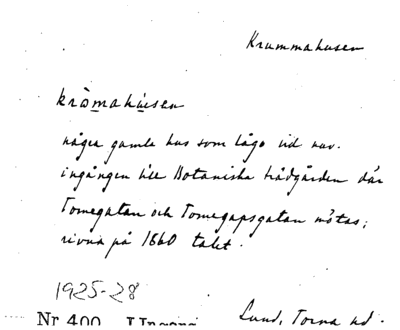 Krummahusen
kròmahúsen
några gamla hus som lågo vid nuv.
ingången till Botaniska trädgården där
Tomegatan och Tomegapsgatan mötas;
rivna på 1860 talet.
1925-28
Lund, Torna hd.
Nr 400